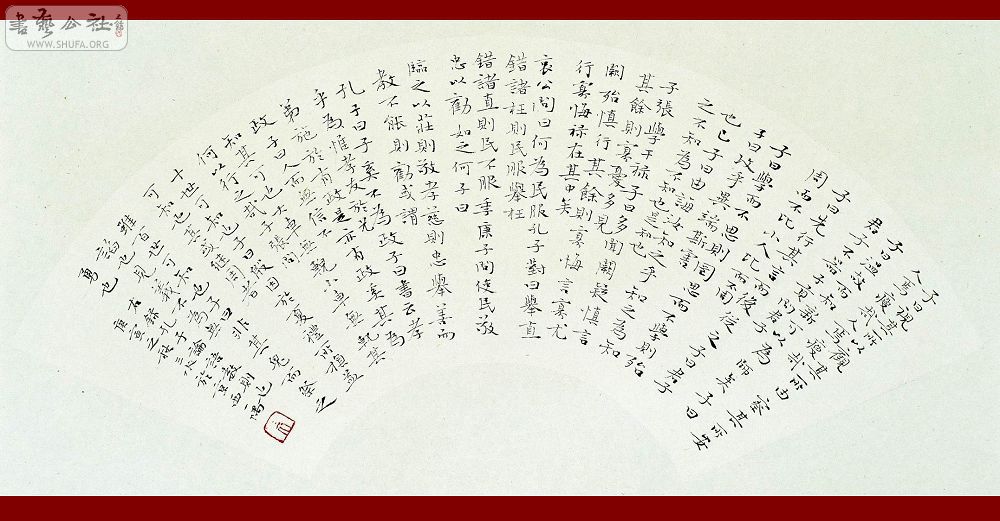 子曰視其所以觀其所由察其所安
人焉廋哉人焉廋哉
子曰溫故而知新可以為師矣子曰
君子不器子貢問君子
子曰先行其言而後從之子曰君子
周而不比小人比而不周
子曰學而不思則罔思而不學則殆
子曰攻乎異端斯害
也已子曰由誨汝知之乎知之為知
之不知為不知是知也
子張學干祿子曰多聞闕疑慎言
其餘則寡憂多見
闕殆慎行其餘則寡悔言寡尤
行寡悔祿在其中矣
哀公問曰何為民服孔子對曰舉直
錯諸枉則民服舉枉
錯諸直則民不服季康子問使民敬
忠以勸如之何子曰
臨之以莊則敬孝慈則忠舉善而
教不能則勸或謂
孔子曰子奚不為政子曰書云孝
乎惟孝友於兄
弟施於有政是亦有政奚其為
為政子曰人而無信不
知其可也大車無輗小車無軏其
何以行之哉子張問
十世可知也子曰殷因於夏禮所損益
可知也其或繼周者
雖百世可知也子曰非其鬼而祭之
諂也見義不為無
勇也
書藝公社
WWW.SHUFA.ORG